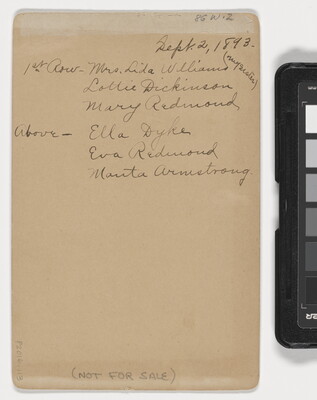 85 W-2
Sept. 2, 1893.
1st Row - Mrs. Lida Williams
Lollie Dickinson
Mary Redmond
Above - Ella Dyke
Eva Redmond
Armstrong
(NOT FOR SALE)